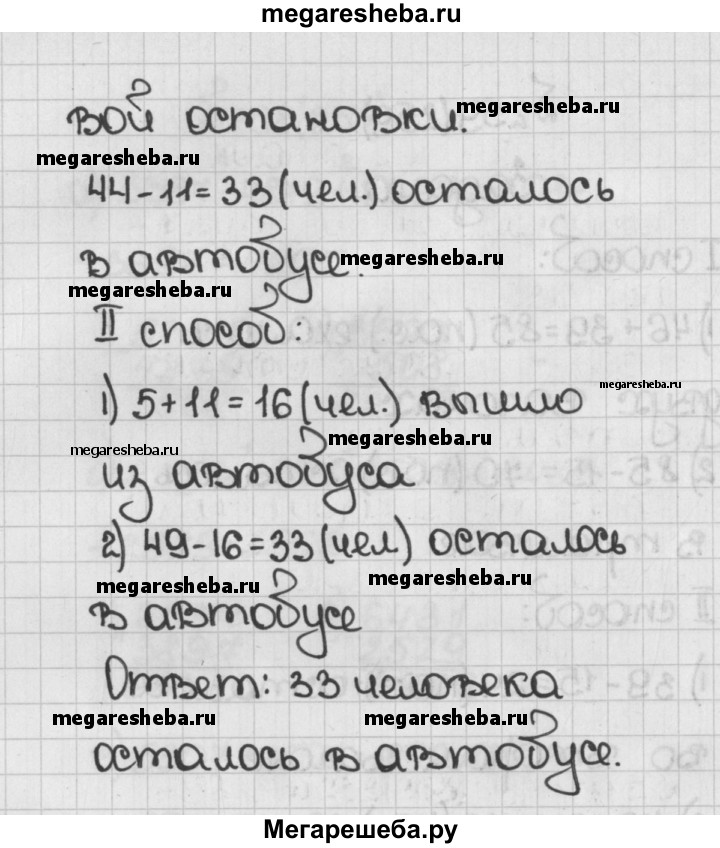 megaresheba.ru
вой остановки.
megaresheba.ru
megaresheba.ru
44-11=33(чел.) осталось
в автобусе.
megaresheba.ru
megaresheba.ru
II способ:
1) 5+11=16(чел.) вышло
megaresheba.ru
megaresheba.ru
megaresheba.ru
из автобуса
2) 49-16=33(чел) осталось
megaresheba.ru
megaresheba.ru
в автобусе
Ответ: 33 человека
megaresheba.ru
megaresheba.ru
осталось в автобусе.
Мегарешеба.ру